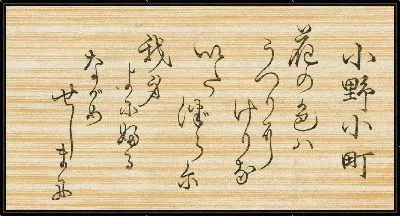 小野小町
花の色は
うつりに
けりな
いたづらに
我身
よにふる
ながめ
せしまに